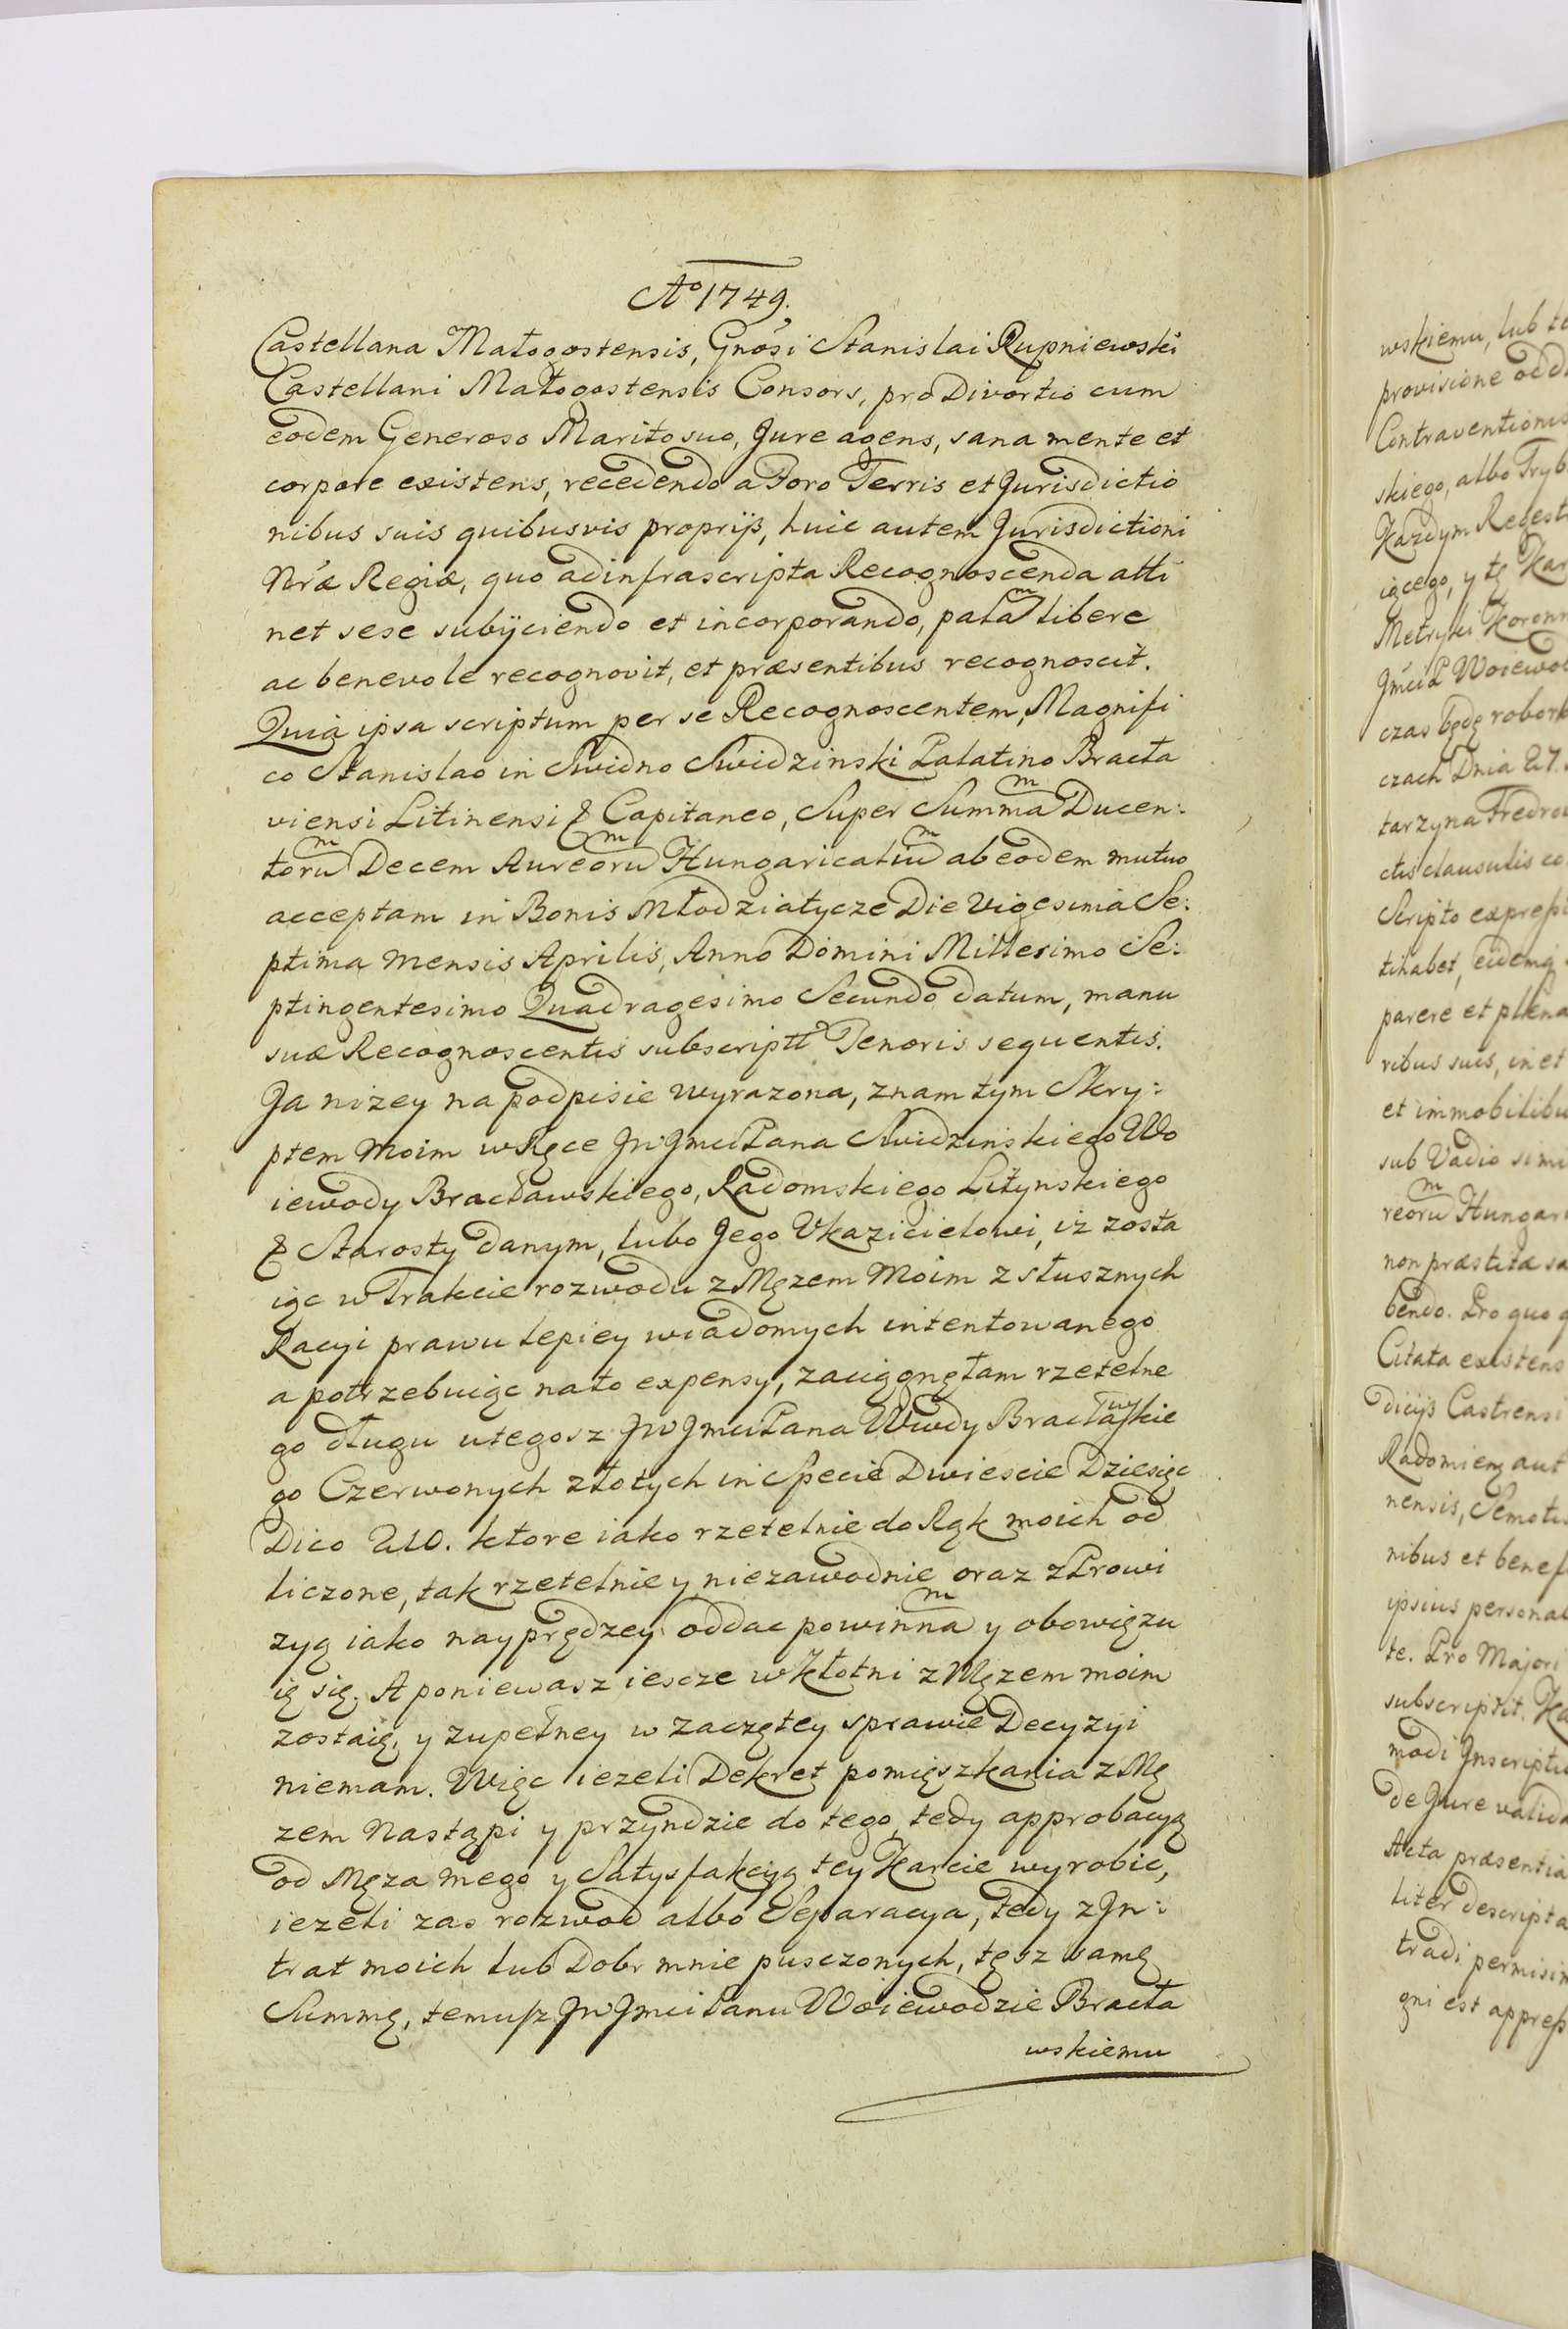 Ao 1749.
Castellana Małogostensis, Gnosi Stanislai Rupniewski
Castellani Małogostensis Consors, pro Divortio cum
eodem Generoso Marito suo, Jure agens, sana mente et
corpore existens, recedendo a Foro Terris et Jurisdictio
nibus suis quibusvis proprijs, huic autem Jurisdictioni
Nræ Regiæ, quo ad infrascripta Recognoscenda atti
net sese subijciendo et incorporando, palam libere
ac benevole recognovit, et præsentibus recognoscit.
Quia ipsa scriptum per se Recognoscentem, Magnifi
co Stanislao in Swidno Swidzinski Palatino Bracła
viensi Litinensi & Capitaneo, Super Summam Ducen:
torum Decem Aureorum Hungaricalium ab eodem mutuo
acceptam in Bonis Młodziatycze Die Vigesima Se:
ptima Mensis Aprilis, Anno Domini Millesimo Se:
ptingentesimo Quadragesimo Secundo datum, manu
suæ Recognoscentis subscriptt Tenoris sequentis.
Ja nizey na podpisie wyrazona, znam tym Skry:
ptem Moim w Ręce JW Jmci Pana Swidzinskiego Wo
iewody Bracławskiego, Radomskiego Litynskiego
& Starosty danym, lubo Jego Ukazicielowi, iz zosta
iąc w Trakcie rozwodu z Męzem Moim z słusznych
Racyi prawu lepiey wiadomych intentowanego
a potrzebuiąc na to expensy, zaciągnęłam rzetelne
go długu u tegosz JW Jmci Pana Wwdy Bracławskie
go Czerwonych złotych in Specie Dwiescie Dziesięc
Dico 210. ktore iako rzetelnie do Rąk moich od
liczone, tak rzetelnie y niezawodnie oraz z Prowi
zyą iako nayprędzey oddac powinnam y obowięzu
ię się. A poniewasz iescze w Kłotni z Męzem moim
zostaię, y zupełney w zaczętey sprawie Decyzyi
niemam. Więc iezeli Dekret pomięszkania z Mę
zem Nastąpi y przyndzie do tego, tedy approbacyą
od Męza mego y Satysfakcyą tey Karcie wyrobic,
iezeli zas rozwod albo Separacya, tedy z In:
trat moich lub Dobr mnie pusczonych, tęsz samę
Summę, temusz JW Jmci Panu Woiewodzie Bracła
wskiemu
wskiemu, lub
provisione
Contraventionis
skiego, albo
Kazdym
iącego, y tę
Metryki
Jmci P
czas będę
czach Dnia 27.
tarzyna
ctis clausulis
Scripto
tihabet, eidemq
parere et
ribus suis, in et
et immobilibu
sub Vadio
reorum
non præstitæ
bendo. Pro quo
Citata existens
dicijs Castrensi
aut
nensis,
nibus et
ipsius
te. Pro Majori
subscriptt.
modi
de Jure
Acta præsentia
liter descripta
tradi
gni est